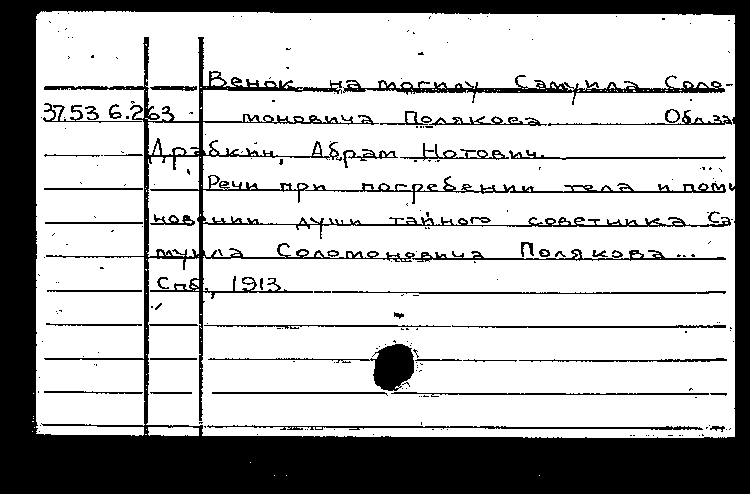 Венок на могилу Самуила Соло-
37.53 6.263 моновича Полякова. Обл.заг
Драбкин, Абрам Нотович.
Речи при погребении тела и поми
новении души тайного советника Са-
муила Соломоновича Полякова...
Спб., 1913.